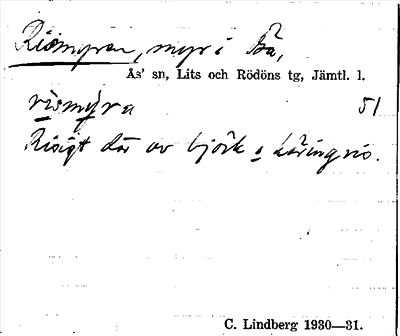 Rismyren, myr i Ås,
Ås' sn, Lits och Rödöns tg, Jämtl. l.
rismýra 51
Risigt där av björk o käringris.
C. Lindberg 1930—31.